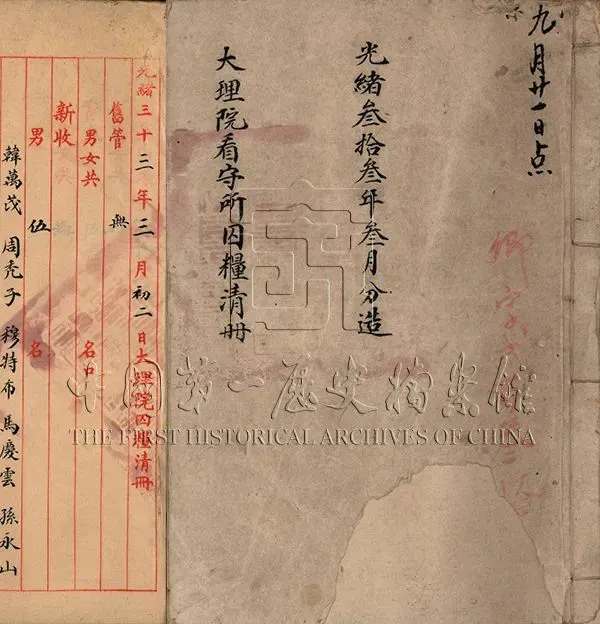 九月廿一日点
光緒叁拾叁年叁月分造
大理院看守所囚糧清冊
光緒三十三年三月初二日大理院囚糧清冊
舊管 無
男女共 名口
新收
男 伍 名
韓萬茂 周禿子 穆特布 馬慶雲 孫永山
中国第一历史档案馆
THE FIRST HISTORICAL ARCHIVES OF CHINA